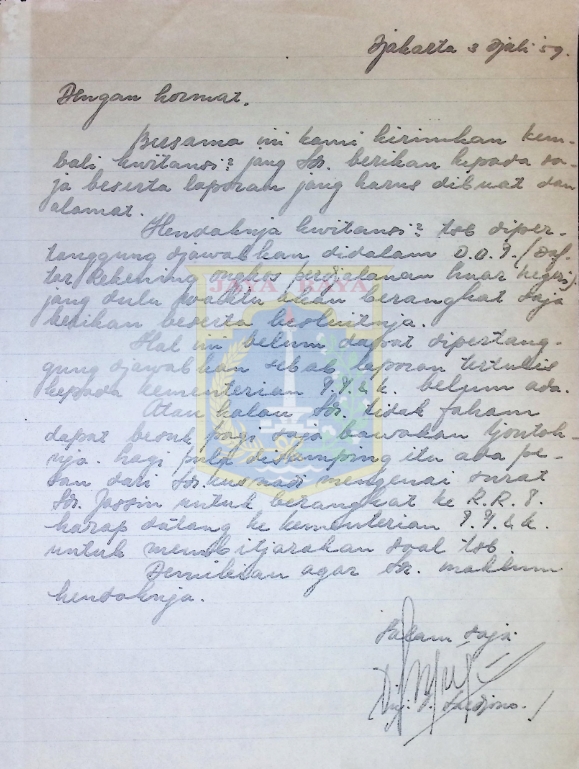 Djakarta 3 Djuli 59.
Dengan hormat.
Bersama ini kami kirimkan kem-
bali kwitansi² jang Sdr. berikan kepada sa-
ja beserta laporan jang harus dibuat dan
alamat.
Hendaknja kwitansi² tsb diper-
tanggung djawabkan didalam D.O.I. (Daf-
tar Rekening ongkos perdjalanan luar negeri)
jang dulu waktu akan berangkat saja
berikan beserta besluitnja.
JAYA RAYA
Hal ini belum dapat dipertang-
gung djawabkan sebab laporan tertulis
kepada kementerian P.P. & K. belum ada.
Atau kalau Sdr. tidak faham
dapat besuk pagi saja bawakan tjontoh-
nja. Lagi pula disamping itu ada pe-
san dari Sdr. Kusnadi mengenai surat
Sdr. Jassin untuk berangkat ke R.R.T.
harap datang ke kementerian P.P. & K.
untuk membitjarakan soal tsb.
Demikian agar Sdr. maklum
hendaknja.
Salam saja